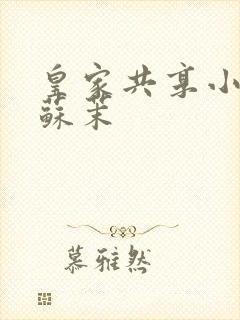 皇家共享小
蘇茉
慕雅然